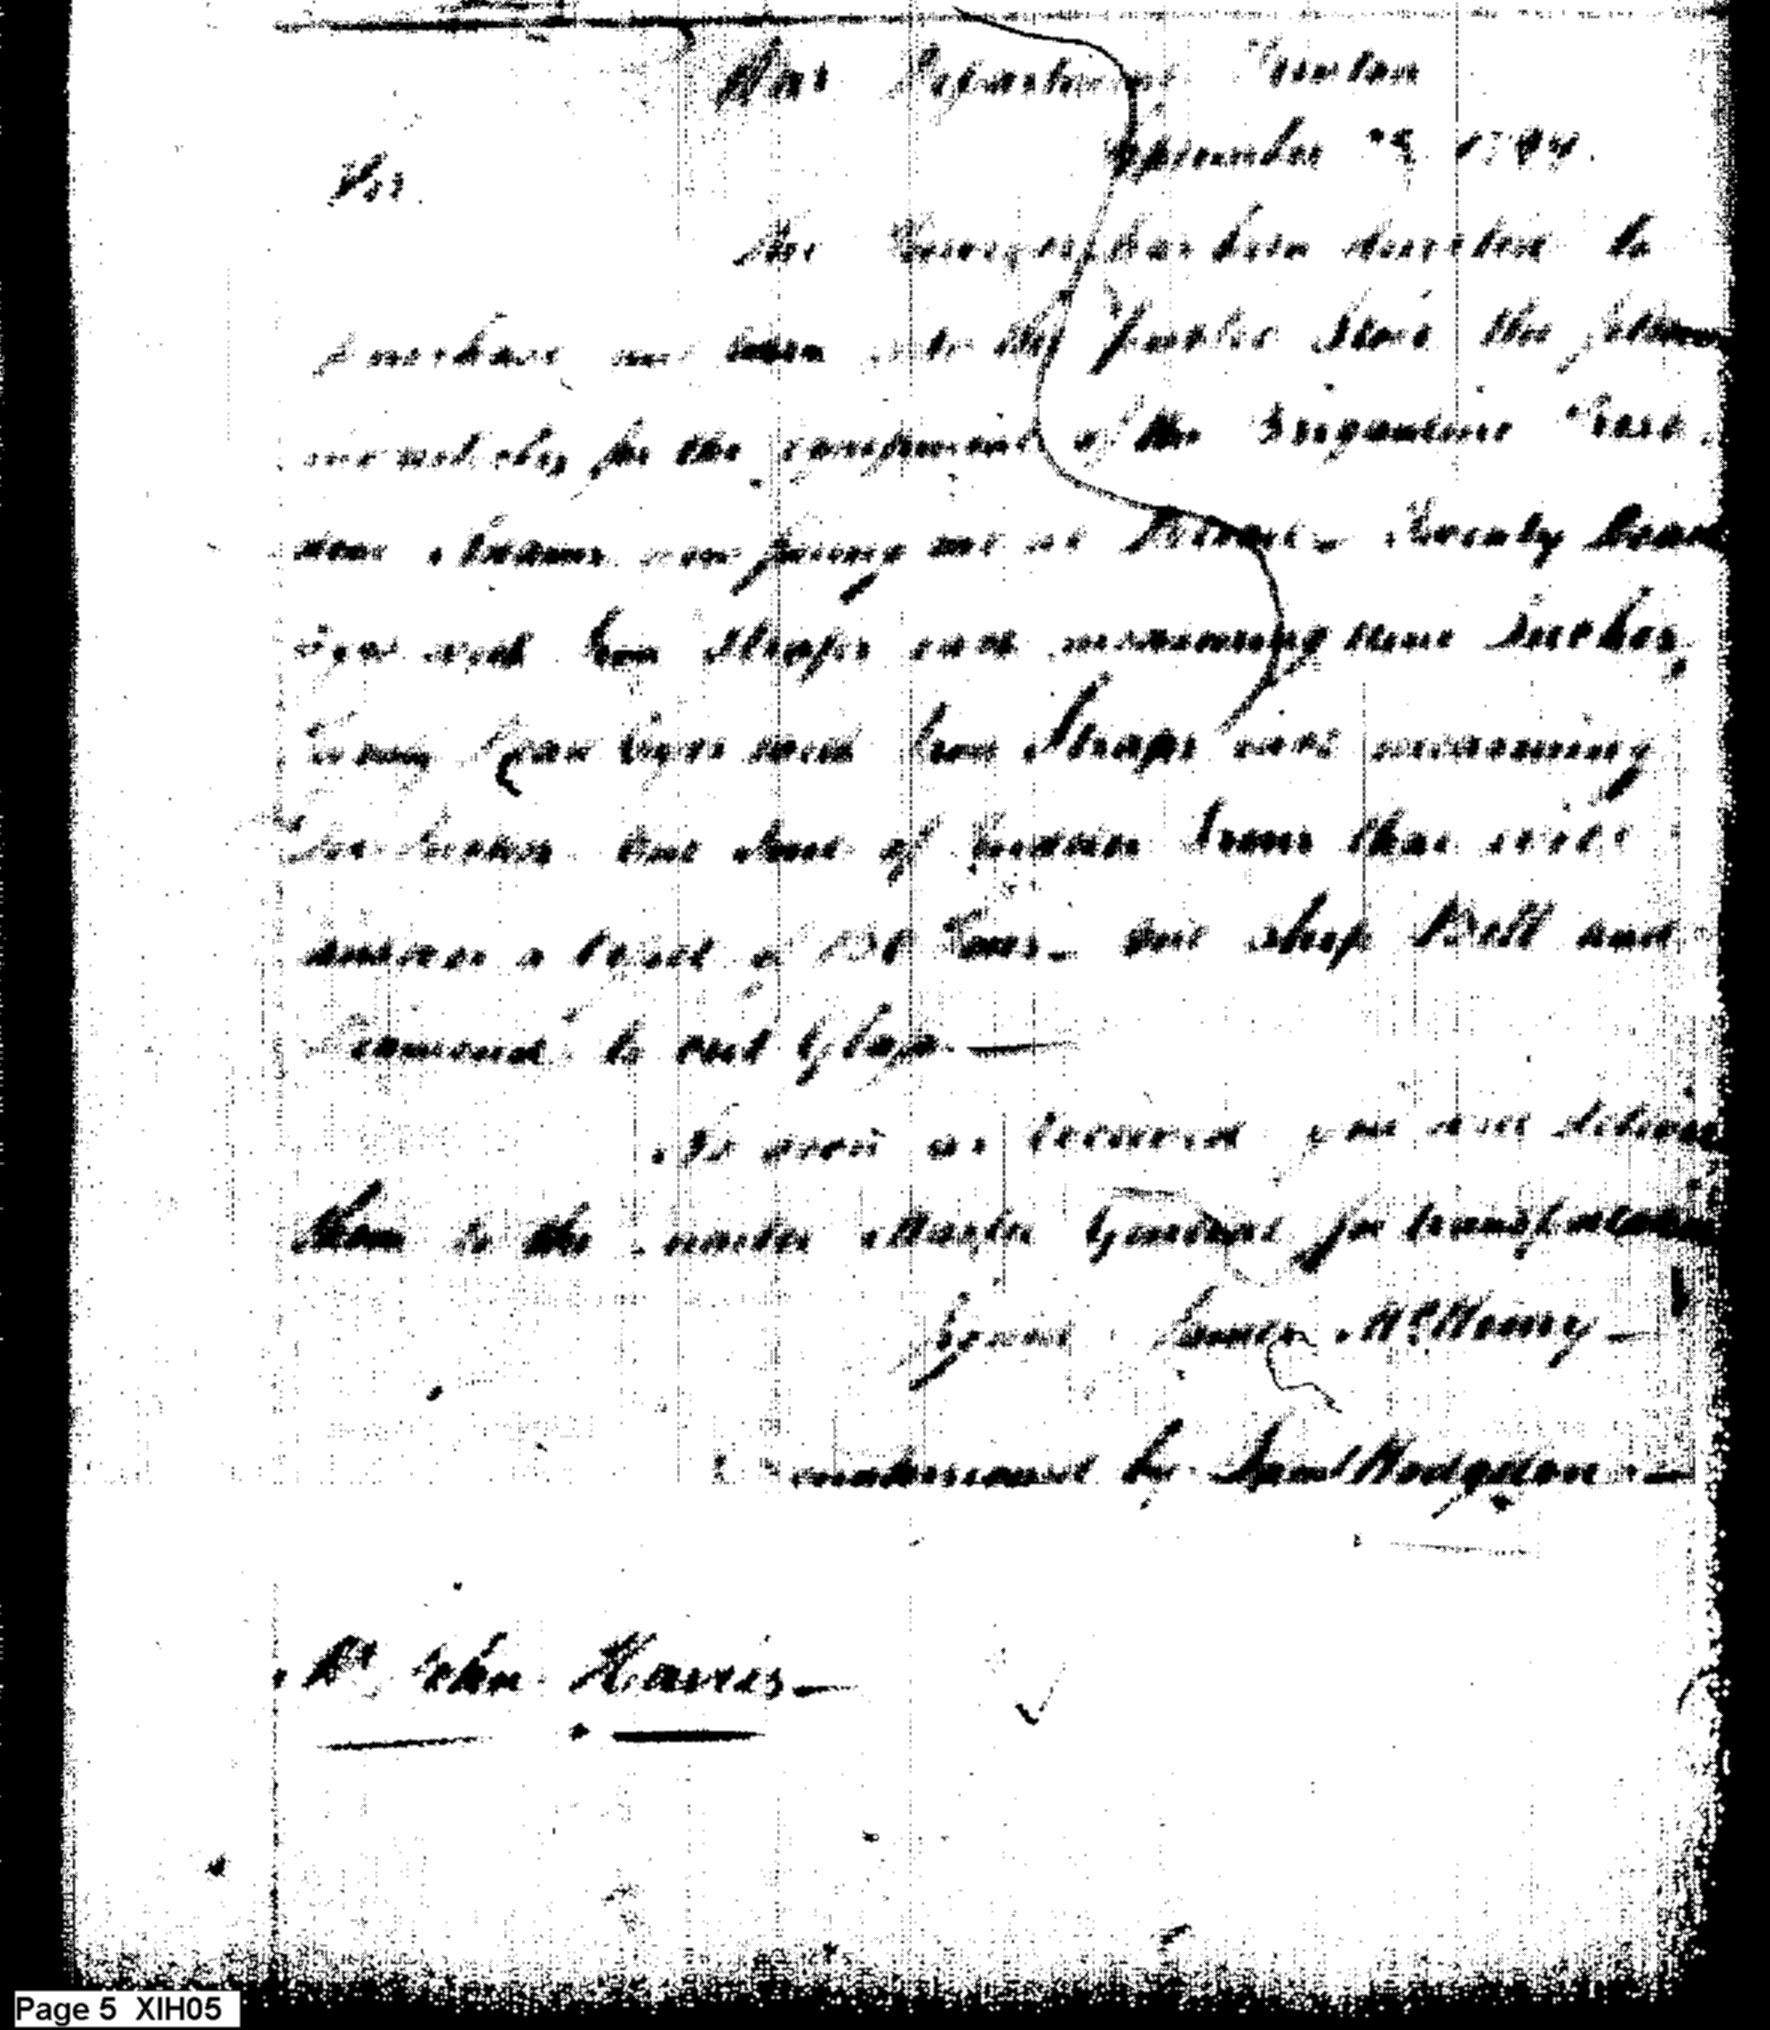 War Department Trenton
September 1794.
Sir
The Purveyor has been directed to
purchase and turn into the Public Store the follow
ing articles for the equipment of the Brigantine
now fixing out at Twenty Dead
Eyes with Iron Straps each measuring nine Inches,
Twenty Dead Eyes with Iron Straps each measuring
Inches One Sett of Rudder Irons that will
answer a Vessel of 130 Tons. One Ship Bell and
Diamond to cut Glass.
As soon as received you will deliver
them to the Quarter Master General for transportation
Signed James McHenry
Countersigned by Saml Hodgdon
Mr. John Harris
Page 5 XIH05